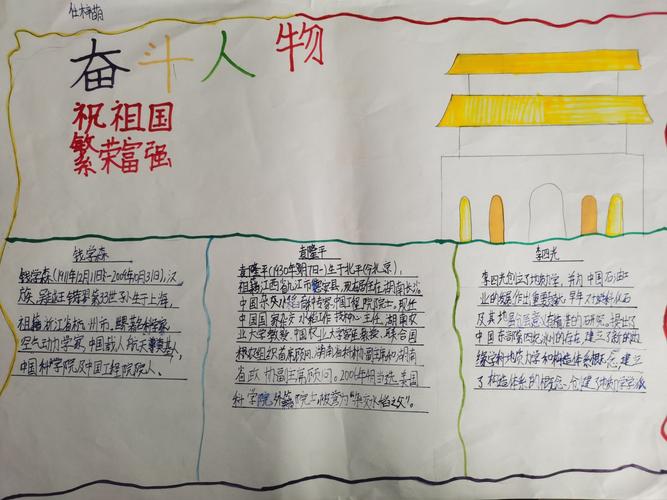 奋斗人物
祝祖国
繁荣富强
钱学森
钱学森(1911年12月11日-2009年10月31日),汉
族,吴越王钱镠第33世孙,生于上海,
祖籍浙江省杭州市。
空气动力学家,中国载人航天奠基人,
中国科学院及中国工程院院人。
袁隆平
袁隆平(1930年9月7日-)生于北平(今北京),
祖籍江西省九江市德安县,现居住在湖南长沙
中国杂交水稻育种专家,中国工程院院士,现任
中国国家杂交水稻工作技术中心主任,湖南农
业大学教授,中国农业大学客座教授,联合国
粮农组织首席顾问,湖南省科协副主席和湖南
省政协副主席顾问。2006年4月当选美国
科学院外籍院士,被誉为“杂交水稻之父”。
李四光
李四光创立了地质力学,并为中国石油工
业的发展作出重要贡献,早年对蜓科化石
及其地层
中国东部第四纪冰川的存在,建立了新的边
缘学科地质力学和构造体系概念,建立
了构造体系的概念,创建了地质力学学派